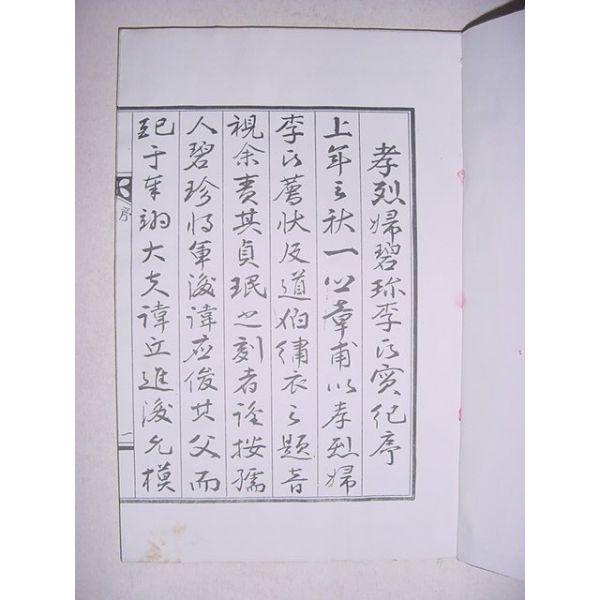 孝烈婦碧珍李氏實紀序
上年之秋一章甫以孝烈婦
李氏薦狀及道伯繡衣之題音
視余責其貞珉之刻者按孺
人碧珍將軍後諱應俊其父而
配于奉翊大夫諱丘進後允模
序
一